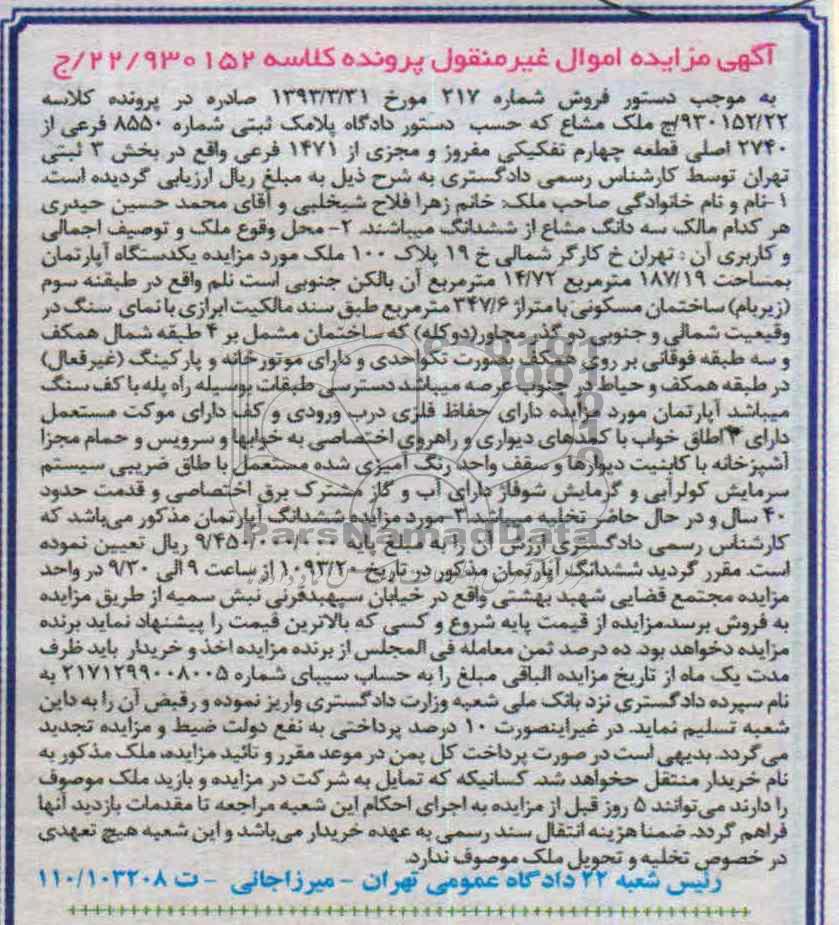 آگهی مزایده اموال غیرمنقول پرونده کلاسه ۲۲/۹۳۰۱۵۲/ج
به موجب دستور فروش شماره ۲۱۷ مورخ ۱۳۹۳/۳/۳۱ صادره در پرونده کلاسه
۹۳۰۱۵۲/۲۲/ج ملک مشاع که حسب دستور دادگاه پلامک ثبتی شماره ۸۵۵۰ فرعی از
۲۷۴۰ اصلی قطعه چهارم تفکیکی مفروز و مجزی از ۱۴۷۱ فرعی واقع در بخش ۳ ثبتی
تهران توسط کارشناس رسمی دادگستری به شرح ذیل به مبلغ ریال ارزیابی گردیده است.
۱-نام و نام خانوادگی صاحب ملک: خانم زهرا فلاح شیخلبی و آقای محمد حسین حیدری
هر کدام مالک سه دانگ مشاع از ششدانگ میباشند. ۲- محل وقوع ملک و توصیف اجمالی
و کاربری آن : تهران خ کارگر شمالی خ ۱۹ پلاک ۱۰۰ ملک مورد مزایده یکدستگاه آپارتمان
بمساحت ۱۸۷/۱۹ مترمربع ۱۴/۷۲ مترمربع آن بالکن جنوبی است نلم واقع در طیقنه سوم
(زیربام) ساختمان مسکونی با متراژ ۳۴۷/۶ مترمربع طبق سند مالکیت ابرازی با نمای سنگ در
وقیعیت شمالی و جنوبی دو گذر مجاور(دوکله) که ساختمان مشمل بر ۴ طبقه شمال همکف
و سه طبقه فوقانی بر روی همکف بصورت تکواحدی و دارای موتورخانه و پارکینگ (غیرفعال)
در طبقه همکف و حیاط در جنوب عرصه میباشد دسترسی طبقات بوسیله راه پله با کف سنگ
میباشد آپارتمان مورد مزایده دارای حفاظ فلزی درب ورودی و کف دارای موکت مستعمل
دارای ۳ اطاق خواب با کمدهای دیواری و راهروی اختصاصی به خوابها و سرویس و حمام مجزا
آشپزخانه با کابنیت دیوارها و سقف واحد رنگ آمیزی شده مستعمل با طاق ضریبی سیستم
سرمایش کولرآبی و گرمایش شوفاژ دارای آب و گاز مشترک برق اختصاصی و قدمت حدود
۴۰ سال و در حال حاضر تخلیه میباشد.۳- مورد مزایده ششدانگ آپارتمان مذکور می‌باشد که
کارشناس رسمی دادگستری ارزش آن را به مبلغ پایه ۹/۴۵۰/۰۰۰/۰۰۰ ریال تعیین نموده
است. مقرر گردید ششدانگ آپارتمان مذکور در تاریخ از ساعت ۹ الی ۹/۳۰ در واحد
مزایده مجتمع قضایی شهید بهشتی واقع در خیابان سپهبدقرنی نبش سمیه از طریق مزایده
به فروش برسد.مزایده از قیمت پایه شروع و کسی که بالاترین قیمت را پیشنهاد نماید برنده
مزایده دخواهد بود. ده درصد ثمن معامله فی المجلس از برنده مزایده اخذ و خریدار باید ظرف
مدت یک ماه از تاریخ مزایده الباقی مبلغ را به حساب سیبای شماره ۲۱۷۱۲۹۹۰۰۸۰۰۵ به
نام سپرده دادگستری نزد بانک ملی شعبه وزارت دادگستری واریز نموده و رقبض آن را به داین
شعبه تسلیم نماید. در غیراینصورت ۱۰ درصد پرداختی به نفع دولت ضبط و مزایده تجدید
می گردد. بدیهی است در صورت پرداخت کل پمن در موعد مقرر و تائید مزایده، ملک مذکور به
نام خریدار منتقل حخواهد شد. کسانیکه که تمایل به شرکت در مزایده و بازید ملک موصوف
را دارند می‌توانند ۵ روز قبل از مزایده به اجرای احکام این شعبه مراجعه تا مقدمات بازدید آنها
فراهم گردد. ضمنا هزینه انتقال سند رسمی به عهده خریدار می‌باشد و این شعبه هیچ تعهدی
در خصوص تخلیه و تحویل ملک موصوف ندارد.
رئیس شعبه ۲۲ دادگاه عمومی تهران - میرزاجانی - ت ۱۱۰/۱۰۳۲۰۸
ParsNamadData